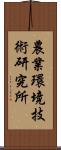 農業環境技
術研究所